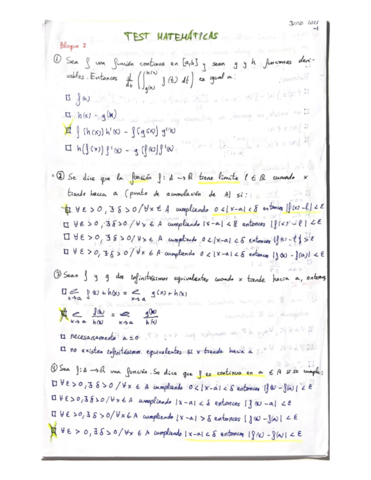 Junio 2021
TEST MATEMÁTICAS
Bloque I
① Sea f una función continua en [a,b] y sean g y h funciones deri-
vables. Entonces d/dx (∫_{g(x)}^{h(x)} f(t) dt) es igual a:
□ f(x)
□ h(x) - g(x)
□ f(h(x))h'(x) - f(g(x)) g'(x)
□ h(f(x))f'(x) - g(f(x))f'(x)
② Se dice que la función f: A → ℝ tiene límite l ∈ ℝ cuando x
tiende hacia a (punto de acumulación de A) si:
□ ∀ε > 0, ∃δ > 0/∀x ∈ A cumpliendo 0<|x-a|<δ entonces |f(x)-l|<ε
□ ∀ε > 0, ∃δ > 0/∀x ∈ A cumpliendo |x-a|<δ entonces |f(x)-l|<ε
□ ∀ε > 0, ∃δ > 0/∀x ∈ A cumpliendo 0<|x-a|<δ entonces |f(x)-l|>ε
□ ∀ε > 0, ∃δ > 0/∀x ∈ A cumpliendo |x-a|<δ entonces |f(x)-f(a)|<ε
③ Sean f y g dos infinitésimos equivalentes cuando x tiende hacia a, entonces
□ lim x→a f(x)+h(x) = lim x→a g(x)+h(x)
□ lim x→a f(x)/h(x) = lim x→a g(x)/h(x)
□ necesariamente a=0
□ no existen infinitésimos equivalentes si x tiende hacia a
④ Sea f: A → ℝ una función. Se dice que f es continua en a ∈ A si se cumple:
□ ∀ε > 0, ∃δ > 0/∀x ∈ A cumpliendo 0<|x-a|<δ entonces |f(x)-f(a)|<ε
□ ∀ε > 0, ∃δ > 0/∀x ∈ A cumpliendo |x-a|<δ entonces |f(x)-a|<ε
□ ∀ε > 0, ∃δ > 0/∀x ∈ A cumpliendo |x-a|>δ entonces |f(x)-f(a)|<ε
□ ∀ε > 0, ∃δ > 0/∀x ∈ A cumpliendo |x-a|<δ entonces |f(x)-f(a)|<ε